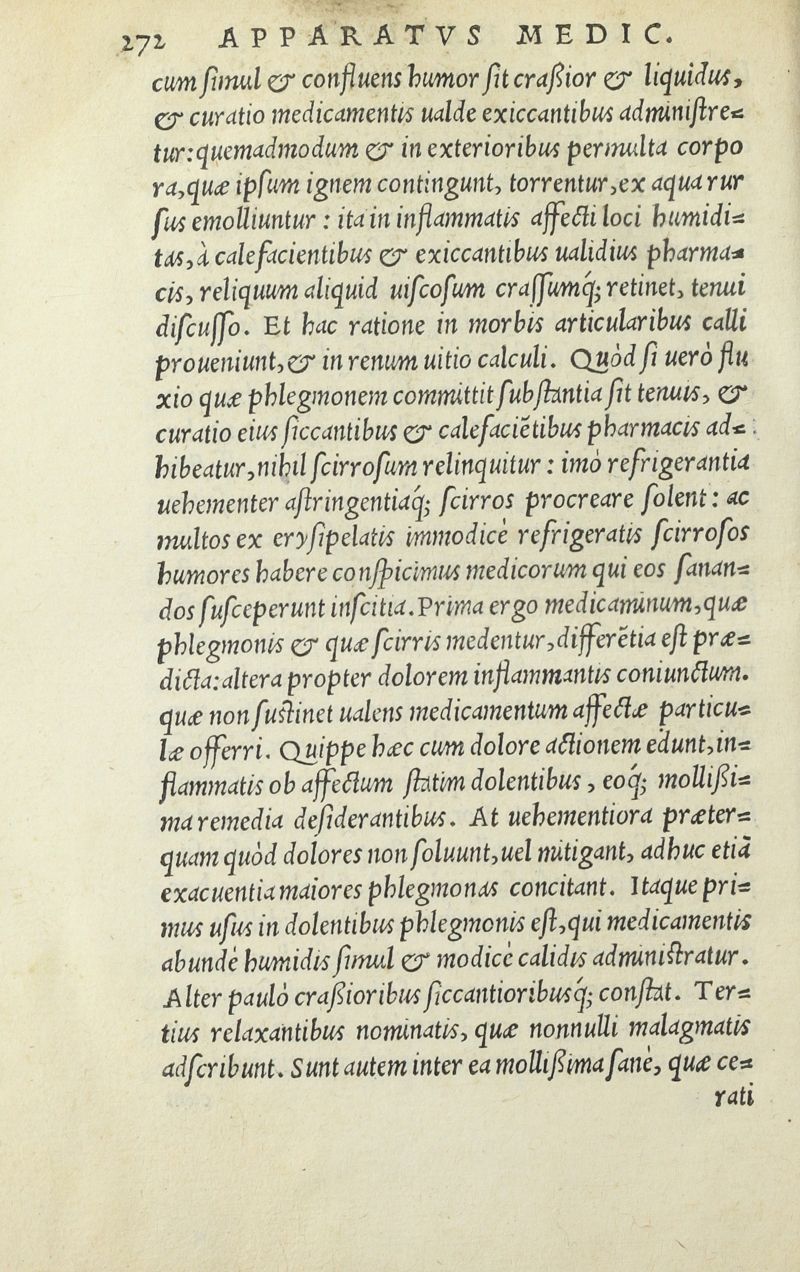 272 APPARATVS MEDIC.
cum ſimul & confluens humor ſit craßior & liquidus,
& curatio medicamentis ualde exiccantibus adminiſtre-
tur: quemadmodum & in exterioribus permulta corpo
ra, quæ ipſum ignem contingunt, torrentur, ex aqua rur
ſus emolliuntur : ita in inflammatis affecti loci humidi-
tas, à calefacientibus & exiccantibus ualidius pharma-
cis, reliquum aliquid uiſcoſum craſſumq́; retinet, tenui
diſcuſſo. Et hac ratione in morbis articularibus calli
proueniunt, & in renum uitio calculi. Quòd ſi uerò flu
xio quæ phlegmonem committit ſubſtantia ſit tenuis, &
curatio eius ſiccantibus & calefaciẽtibus pharmacis ad-
hibeatur, nihil ſcirroſum relinquitur : imò refrigerantia
uehementer aſtringentiaq́; ſcirros procreare ſolent : ac
multos ex eryſipelatis immodicè refrigeratis ſcirroſos
humores habere conſpicimus medicorum qui eos ſanan-
dos ſuſceperunt inſcitia. Prima ergo medicaminum, quæ
phlegmonis & quæ ſcirris medentur, differẽtia eſt præ-
dicta: altera propter dolorem inflammantis coniunctum.
quæ non ſuſtinet ualens medicamentum affectæ particu-
læ offerri. Quippe hæc cum dolore actionem edunt, in-
flammatis ob affectum ſtatim dolentibus, eoq́; mollißi-
ma remedia deſiderantibus. At uehementiora præter-
quam quòd dolores non ſoluunt, uel mitigant, adhuc etiã
exacuentia maiores phlegmonas concitant. Itaque pri-
mus uſus in dolentibus phlegmonis eſt, qui medicamentis
abundè humidis ſimul & modicè calidis adminiſtratur.
Alter paulò craßioribus ſiccantioribusq́; conſtat. Ter-
tius relaxantibus nominatis, quæ nonnulli malagmatis
adſcribunt. Sunt autem inter ea mollißima ſanè, quæ ce-
rati